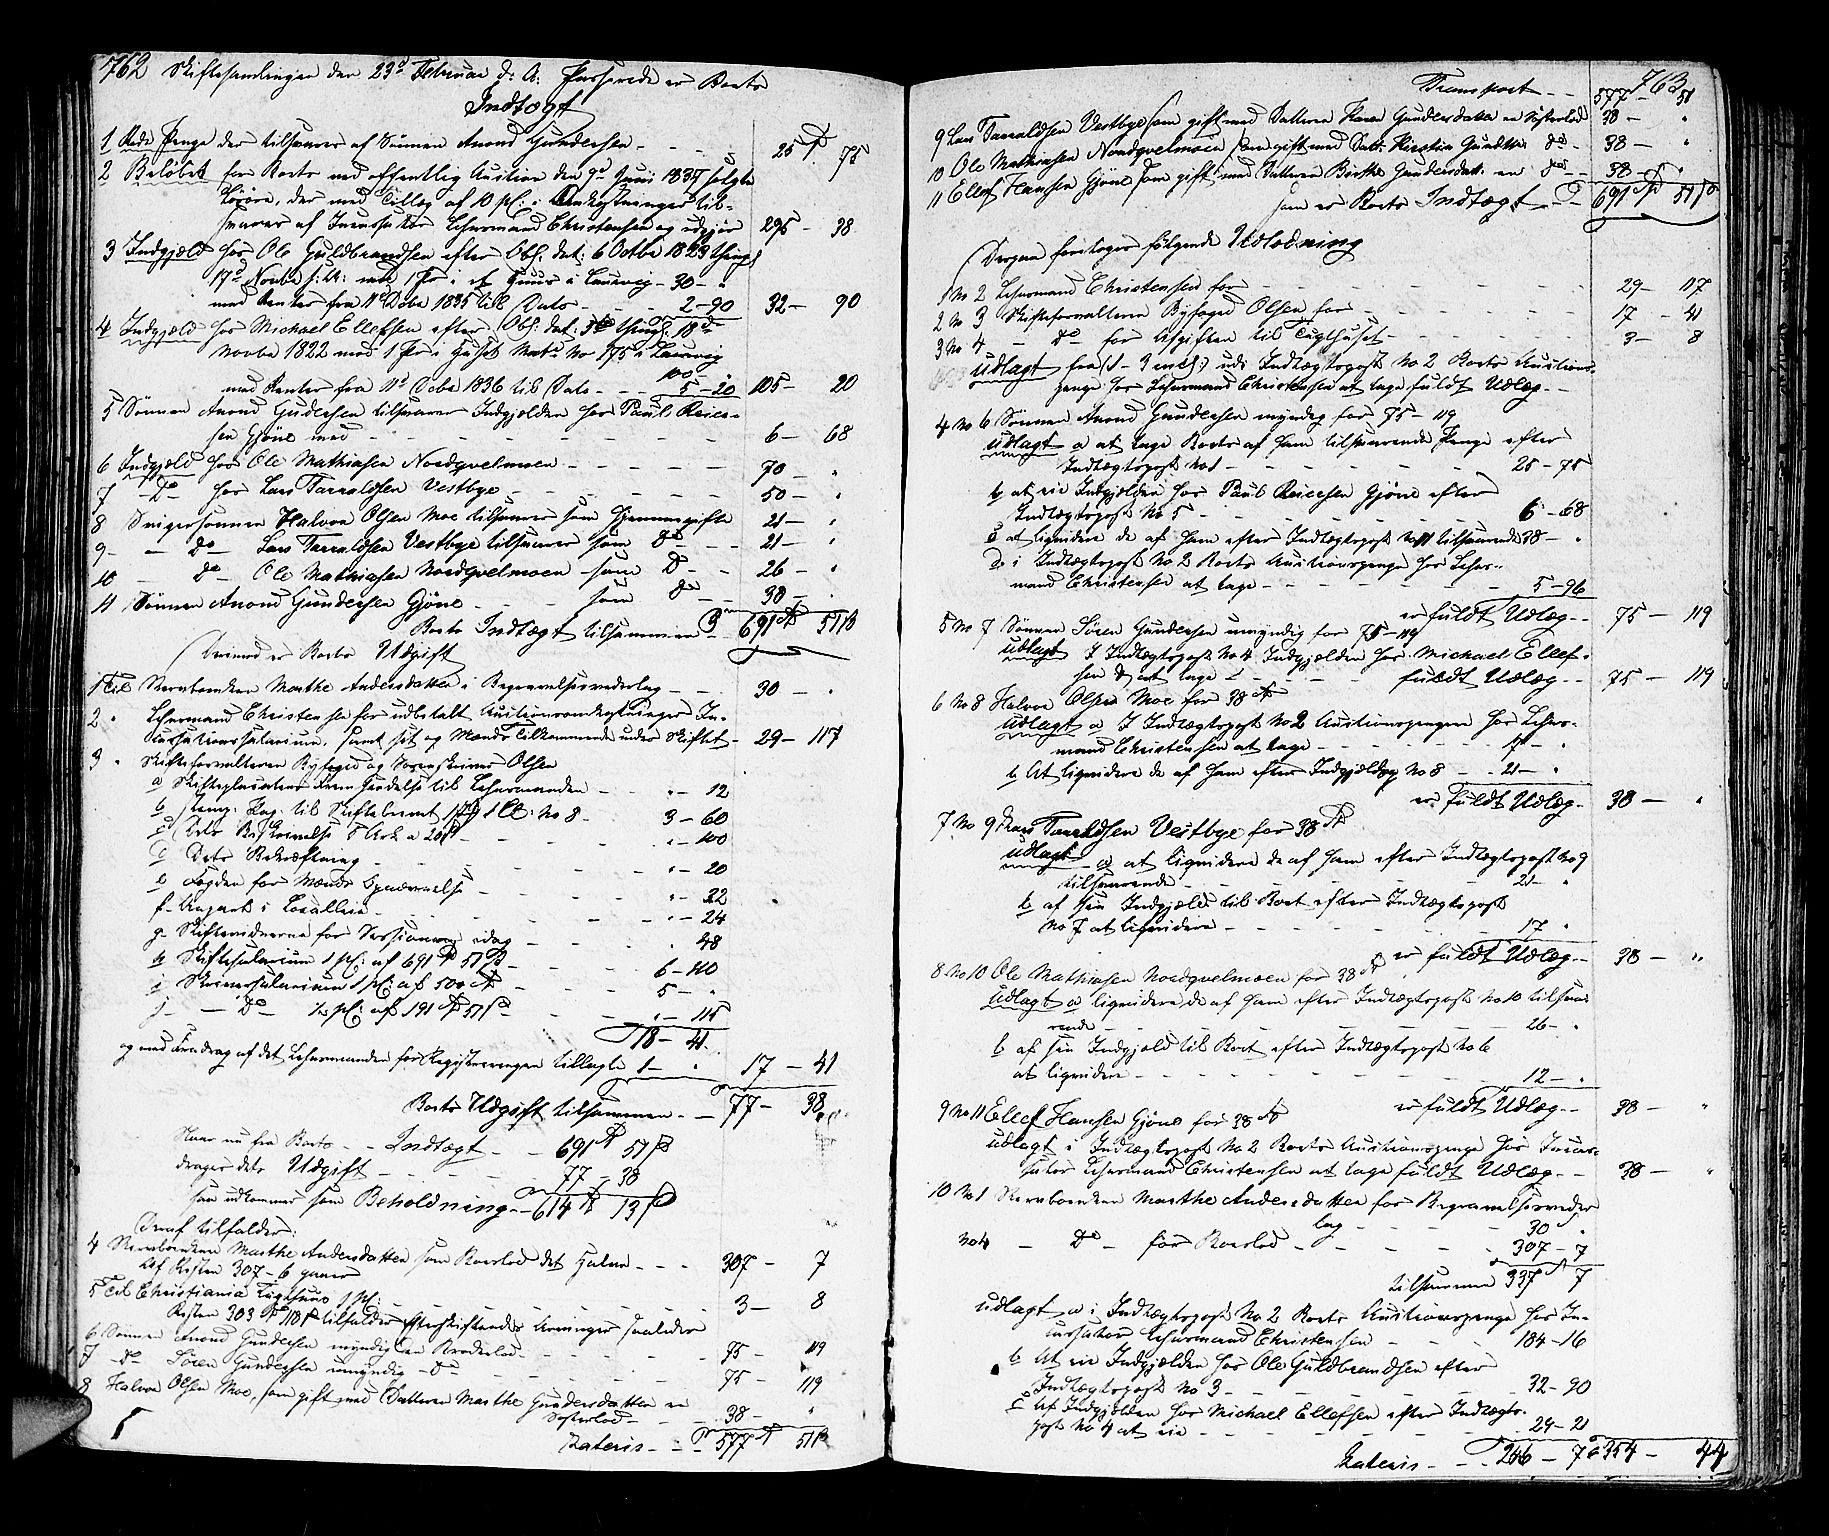 762 Skiftesamlingen den 23d Februar d: A: Passerede er Boets
Indtægt
1 Rede Penge der tilsvares af Sønnen Anond Gundersen - 25 75
2 Beløbet for Boets ved offentlig Auction den 9d Juni 1837 solgte
Løsøre, der med Tillæg af 10 pC: i Omkostninger til-
svares af Incassator Lehnsmand Christensen og udgjør 295 - 38
3 Indgjæld hos Ole Guldbrandsen efter Obl: dat: 6 Octbr 1829 thingl
17d Novbr s: A: med 1 Pr: i et Huus i Laurvig - 30 - "
med Renter fra 11d Debr 1835 til Dato - 2-90 32 - 90
4 Indgjæld hos Michael Ellefsen efter Obl: dat: thingl: 18d
Novbr 1822 med 1 Pr i Huset Matr No 175 i Laurvig
100 -
med Renter fra 11d Debr 1836 til Dato - 5-20 105 - 20
5 Sønnen Anond Gundersen tilsvarer Indgjælden hos Paul Reier-
sen Gjøne med - 6 - 68
6 Indgjæld hos Ole Mathiasen Nordqvelmoen - 70 - "
7 - Do hos Lars Tarraldsen Vestbye - 50 - "
8 Svigersønnen Halvor Olsen Moe tilsvarer som Hjemmegifte 21 - "
9 - Do - Lars Tarraldsen Vestbye tilsvarer som Do - 21 - "
10 - Do - Ole Mathiasen Nordqvelmoen - som Do - 26 - "
11 Sønnen Anond Gundersen Gjøne - som Do - 38 - "
Boets Indtægt tilsammen - 691 51
Derimod er Boets Udgift
1 Til Stervboenken Marthe Andersdatter i Begravelsesvederlag - 30 - "
2 " Lehnsmand Christensen for udbetalt Auctionsomkostninger In-
cassationssalarium, samt sit og Mænds Tilkommende under Skiftet - 29 - 117
3 " Skifteforvalteren Byfoged og Sorenskriver Olsen
a Skifteplacatens Frem sendelse til Lehnsmanden - " - 12
b Stemp: Pap: til Skiftebrevet 1ste Cl: No 8 - 3 - 60
c Dets Beskrivelse 5 Ark a 20 - " - 100
d Dets Bekræftning - " - 20
e Fogden for Mænds Opnævnelse - " - 22
f Anpart i Localleie - " - 24
g Skiftevidnerne for Sessionen idag - " 48
h Skiftesalarium 1 pC: af 691 51 - 6 - 110
i Skriversalarium 1 pC: af 500 - 5 - "
j - Do - ½ pC: af 191 51 - " - 115
18 - 41
og med Fradrag af det Lehnsmanden for Registreringen tillagte 1 - " 17 - 41
Boets Udgift tilsammen - 77 - 38
Naar nu fra Boets - Indtægt - 691 51
drages dets Udgift - 77 - 38
saa udkommer som Beholdning - 614 13
Deraf tilfalder:
4 Stervboenken Marthe Andersdatter som Boeslod det Halve - 307 - 7
Af Resten 307 - 6 gaaer
5 Til Christiania Tugthuus 1 pC: - 3 - 8
Resten 303 118 tilfalder Efterskiftende Arvinger saaledes
6 Sønnen Anond Gundersen myndig en Broderlod - 75 - 119
7 - Do Søren Gundersen umyndig - Do - 75 - 119
8 Halvor Olsen Moe, som gift med Datteren Marthe Gundersdatter en
Søsterlod - 38 - "
Lateris - 577 51
763
Transport - 577 - 51
9 Lars Tarraldsen Vestbye som gift med Datteren Karen Gundersdatter en Søsterlod 38 - "
10 Ole Mathiasen Nordqvelmoen som gift med Datt: Kirstin Gundersd: do - 38 - "
11 Ellef Hansen Gjøne som gift med Datteren Birthe Gundersdatt: en do - 38 - "
som er Boets Indtægt - 691 51
Derpaa foretoges følgende Udlodning
1 No 2 Lehnsmand Christensen for - 29 - 117
2 No 3 Skifteforvalteren Byfoged Olsen for - 17 - 41
3 No 4 - do for Afgiften til Tugthuset - 3 - 8
udlagt fra (1 - 3 incl:) udi Indtægtspost No 2 Boets Auctions-
penge hos Lehnsmand Christensen at tage fuldt Udlæg -
4 No 6 Sønnen Anond Gundersen myndig for 75 - 119
udlagt a at tage Boets af ham tilsvarende Penge efter
Indtægtspost No 1 - 25 - 75
b at eie Indgjælden hos Paul Reiersen Gjøne efter
Indtægtspost No 5 - 6 - 68
c at liqvidere de af ham efter Indtægtspost No 11 tilsvarende 38 - "
d i Indtægtspost No 2 Boets Auctionspenge hos Lehns-
mand Christensen at tage - 5 - 96
er fuldt Udlæg - 75 - 119
5 No 7 Sønnen Søren Gundersen umyndig for 75 - 119
udlagt I Indtægtspost No 4 Indgjælden hos Michael Ellef-
sen at tage - fuldt Udlæg - 75 - 119
6 No 8 Halvor Olsen Moe for 38
udlagt a I Indtægtspost No 2 Auctionspengene hos Lehns-
mand Christensen at tage - 17 - "
b At liqvidere de af ham efter Indgjældspost No 8 - 21 - "
er fuldt Udlæg - 38 - "
7 No 9 Lars Tarraldsen Vestbye for 38
udlagt a at liqvidere de af ham efter Indtægtspost No 9
tilsvarende - 21 - "
b af sin Indgjæld til Boet efter Indtægtspost
No 7 at liqvidere - 17 "
er fuldt Udlæg - 38 - "
8 No 10 Ole Mathiasen Nordqvelmoen for 38
udlagt a liqvidere de af ham efter Indtægtspost No 10 tilsva-
rende - 26 - "
b af sin Indgjæld til Boet efter Indtægtspost No 6
at liqvidere - 12 - "
er fuldt Udlæg - 38 - "
9 No 11 Ellef Hansen Gjøne for 38
udlagt i Indtægtspost No 2 Boets Auctionspenge hos Incas-
sator Lehnsmand Christensen at tage fuldt Udlæg - 38 - "
10 No 1 Stervboenken Marthe Andersdatter for Begravelsesveder
lag - 30 "
No 4 - Do - for Boeslod - 307 - 7
tilsammen 337 7
udlagt a i Indtægtspost No 2 Boets Auctionspenge hos In-
cassator Lehnsmand Christensen - 184 - 16
b At eie Indgjælden hos Ole Guldbrandsen efter
Indtægtspost No 3 - 32 - 90
c Af Indgjælden hos Michael Ellefsen efter Indtægts-
post No 4 at eie - 29 - 21
Lateris - 246 - 7 354 - 44